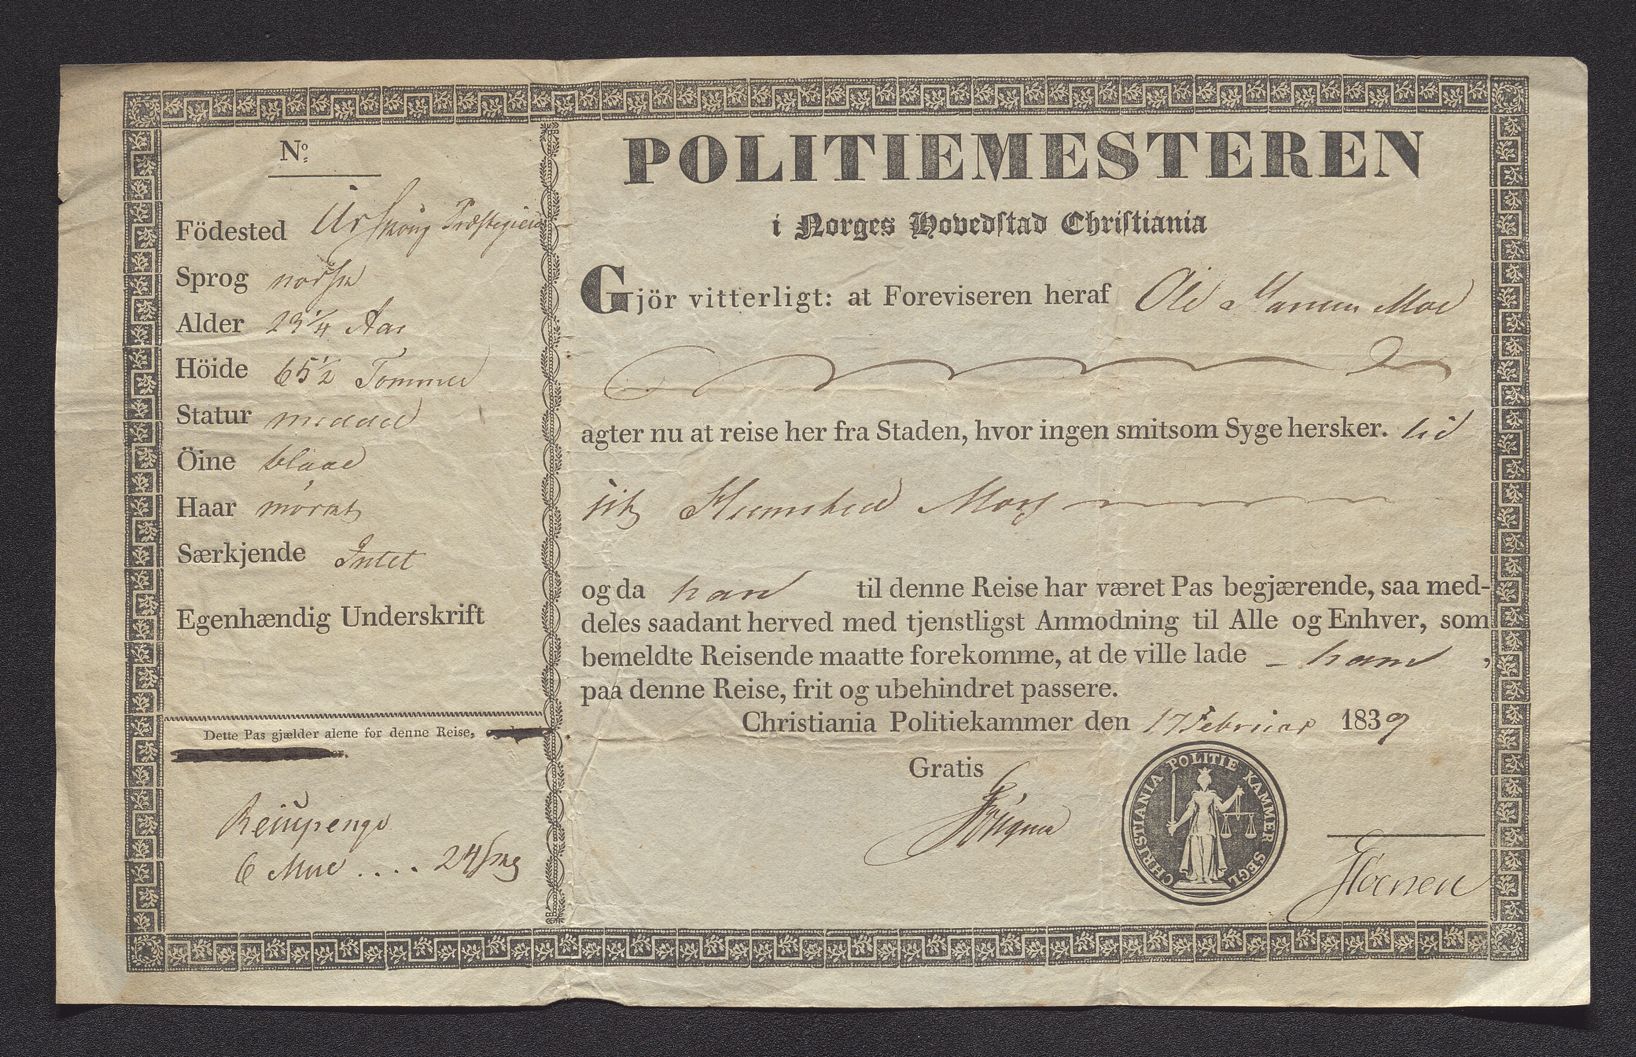 No.
Födested Urskoug Præstegield
Sprog norsk
Alder 23 1/4 Aar
Höide 65 1/2 Tommer
Statur middel
Öine blaae
Haar mörkt
Særkjende Intet
Egenhændig Underskrift
Dette Pas gjælder alene for denne Reise,
Reisepenge
6 Mile .... 24
POLITIEMESTEREN
i Norges Hovedstad Christiania
Gjör vitterligt: at Foreviseren heraf Ole Hansen Moe
agter nu at reise her fra Staden, hvor ingen smitsom Syge hersker. til
sit Hjemsted
og da han til denne Reise har været Pas begjærende, saa med-
deles saadant herved med tjenstligst Anmodning til Alle og Enhver, som
bemeldte Reisende maatte forekomme, at de ville lade - ham ,
paa denne Reise, frit og ubehindret passere.
Christiania Politiekammer den 17 Februar 1839
Gratis
CHRISTIANIA POLITIE KAMMER SEGL